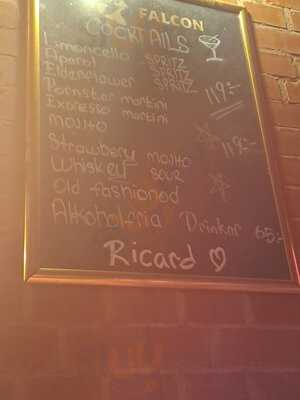 FALCON
COCKTAILS
Limoncello SPRITZ
Aperol SPRITZ
Elderflower SPRITZ
Pornstar martini 119:-
Expresso martini
MOJITO
Strawbery MOJITO 119:-
Whiskey SOUR
Old fashioned
Alkoholfria Drinkar 65:-
Ricard